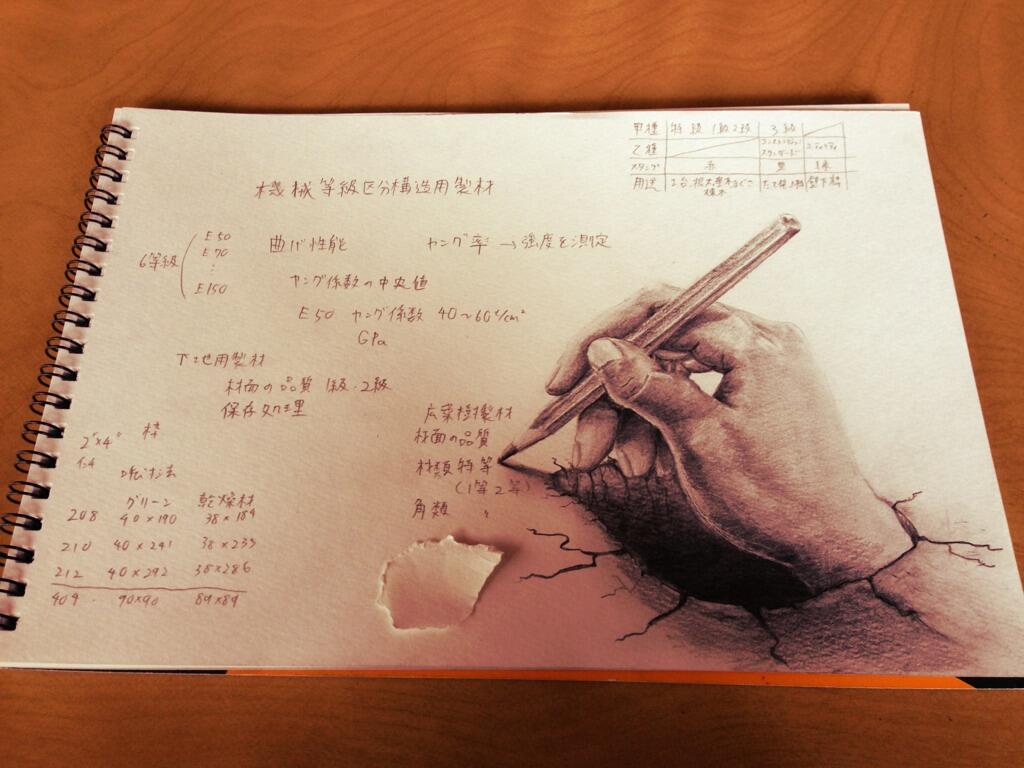 甲種 特級 1級 2級 3級
乙種 コンストラクション スタンダード ユティリティ
スタンプ 赤 黒 緑
用途
機械等級区分構造用製材
6等級
E50
E70
⋮
E150
曲げ性能 ヤング率→強度を測定
ヤング係数の中央値
E50 ヤング係数 40〜60 t/cm²
GPa
下地用製材
材面の品質 1級・2級
保存処理
2"×4" 枠
インチ
呼び寸法
グリーン 乾燥材
208 40×190 38×184
210 40×241 38×235
212 40×292 38×286
404 90×90 89×89
広葉樹製材
材面の品質
板類特等
(1等2等)
角類 〃